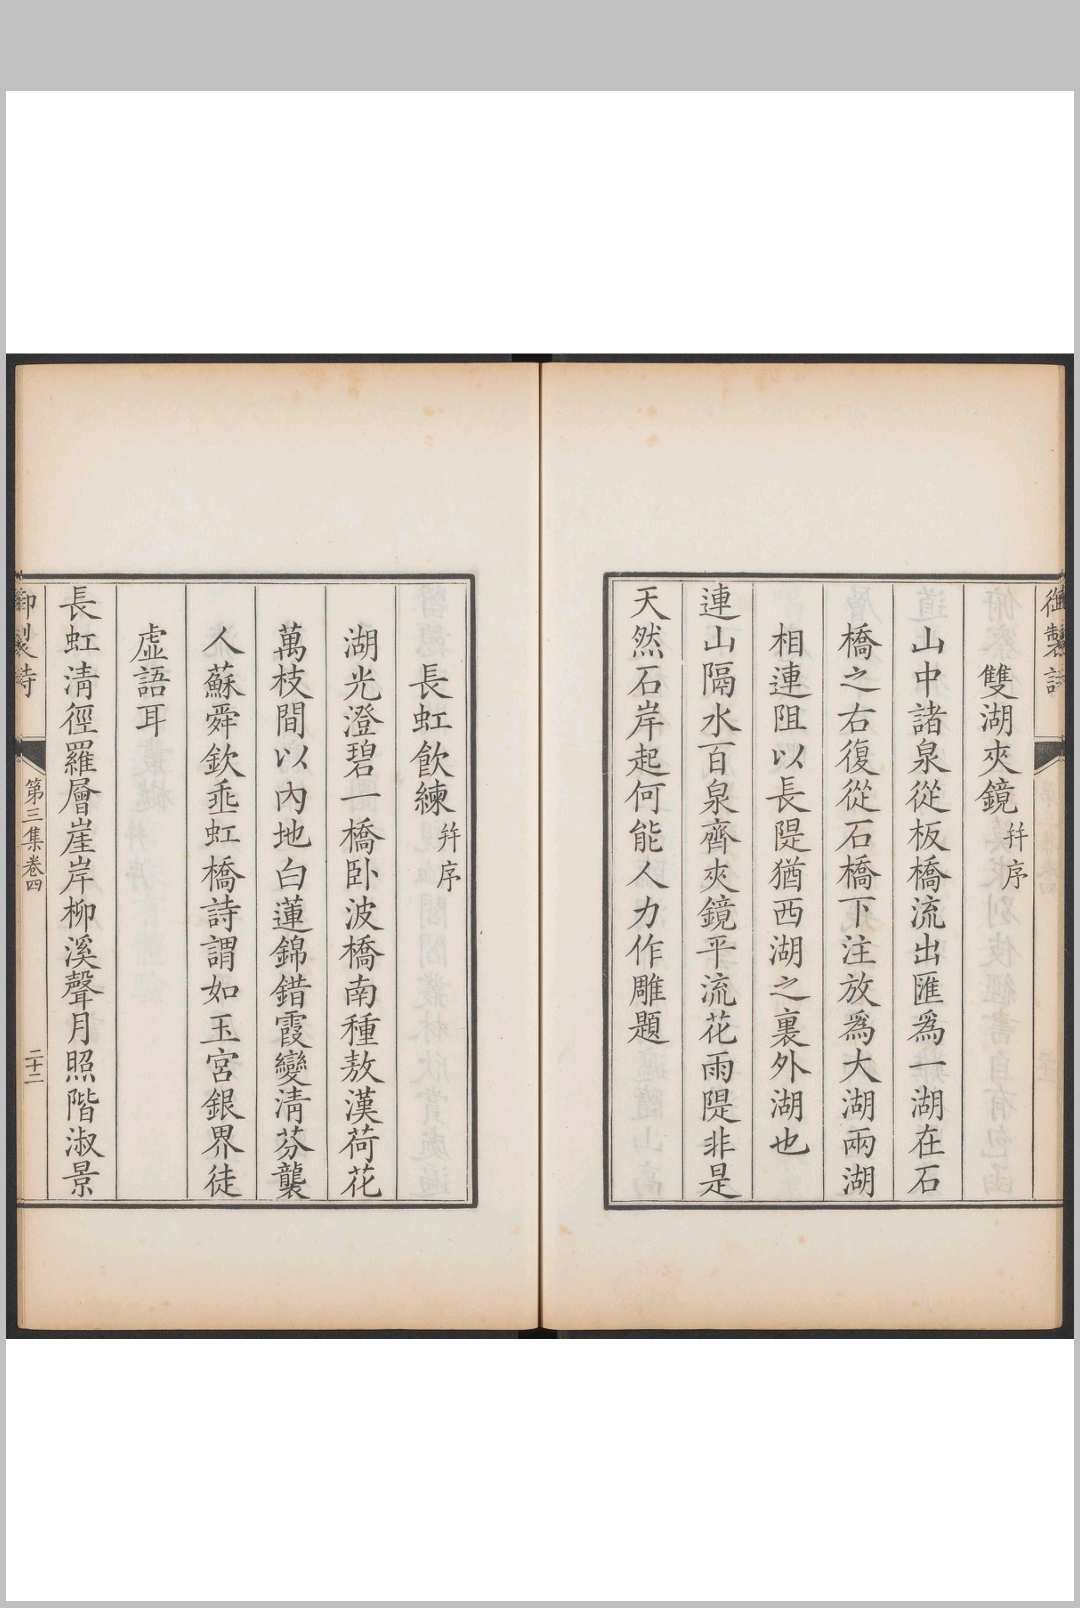 御製詩
雙湖夾鏡 并序
山中諸泉從板橋流出匯爲一湖在石
橋之右復從石橋下注放爲大湖兩湖
相連阻以長隄猶西湖之裏外湖也
連山隔水百泉齊夾鏡平流花雨隄非是
天然石岸起何能人力作雕題
長虹飲練 并序
湖光澄碧一橋卧波橋南種敖漢荷花
萬枝間以內地白蓮錦錯霞變淸芬襲
人蘇舜欽垂虹橋詩謂如玉宮銀界徒
虛語耳
長虹淸徑羅層崖岸柳溪聲月照階淑景
御製詩
第三集卷四
二十二